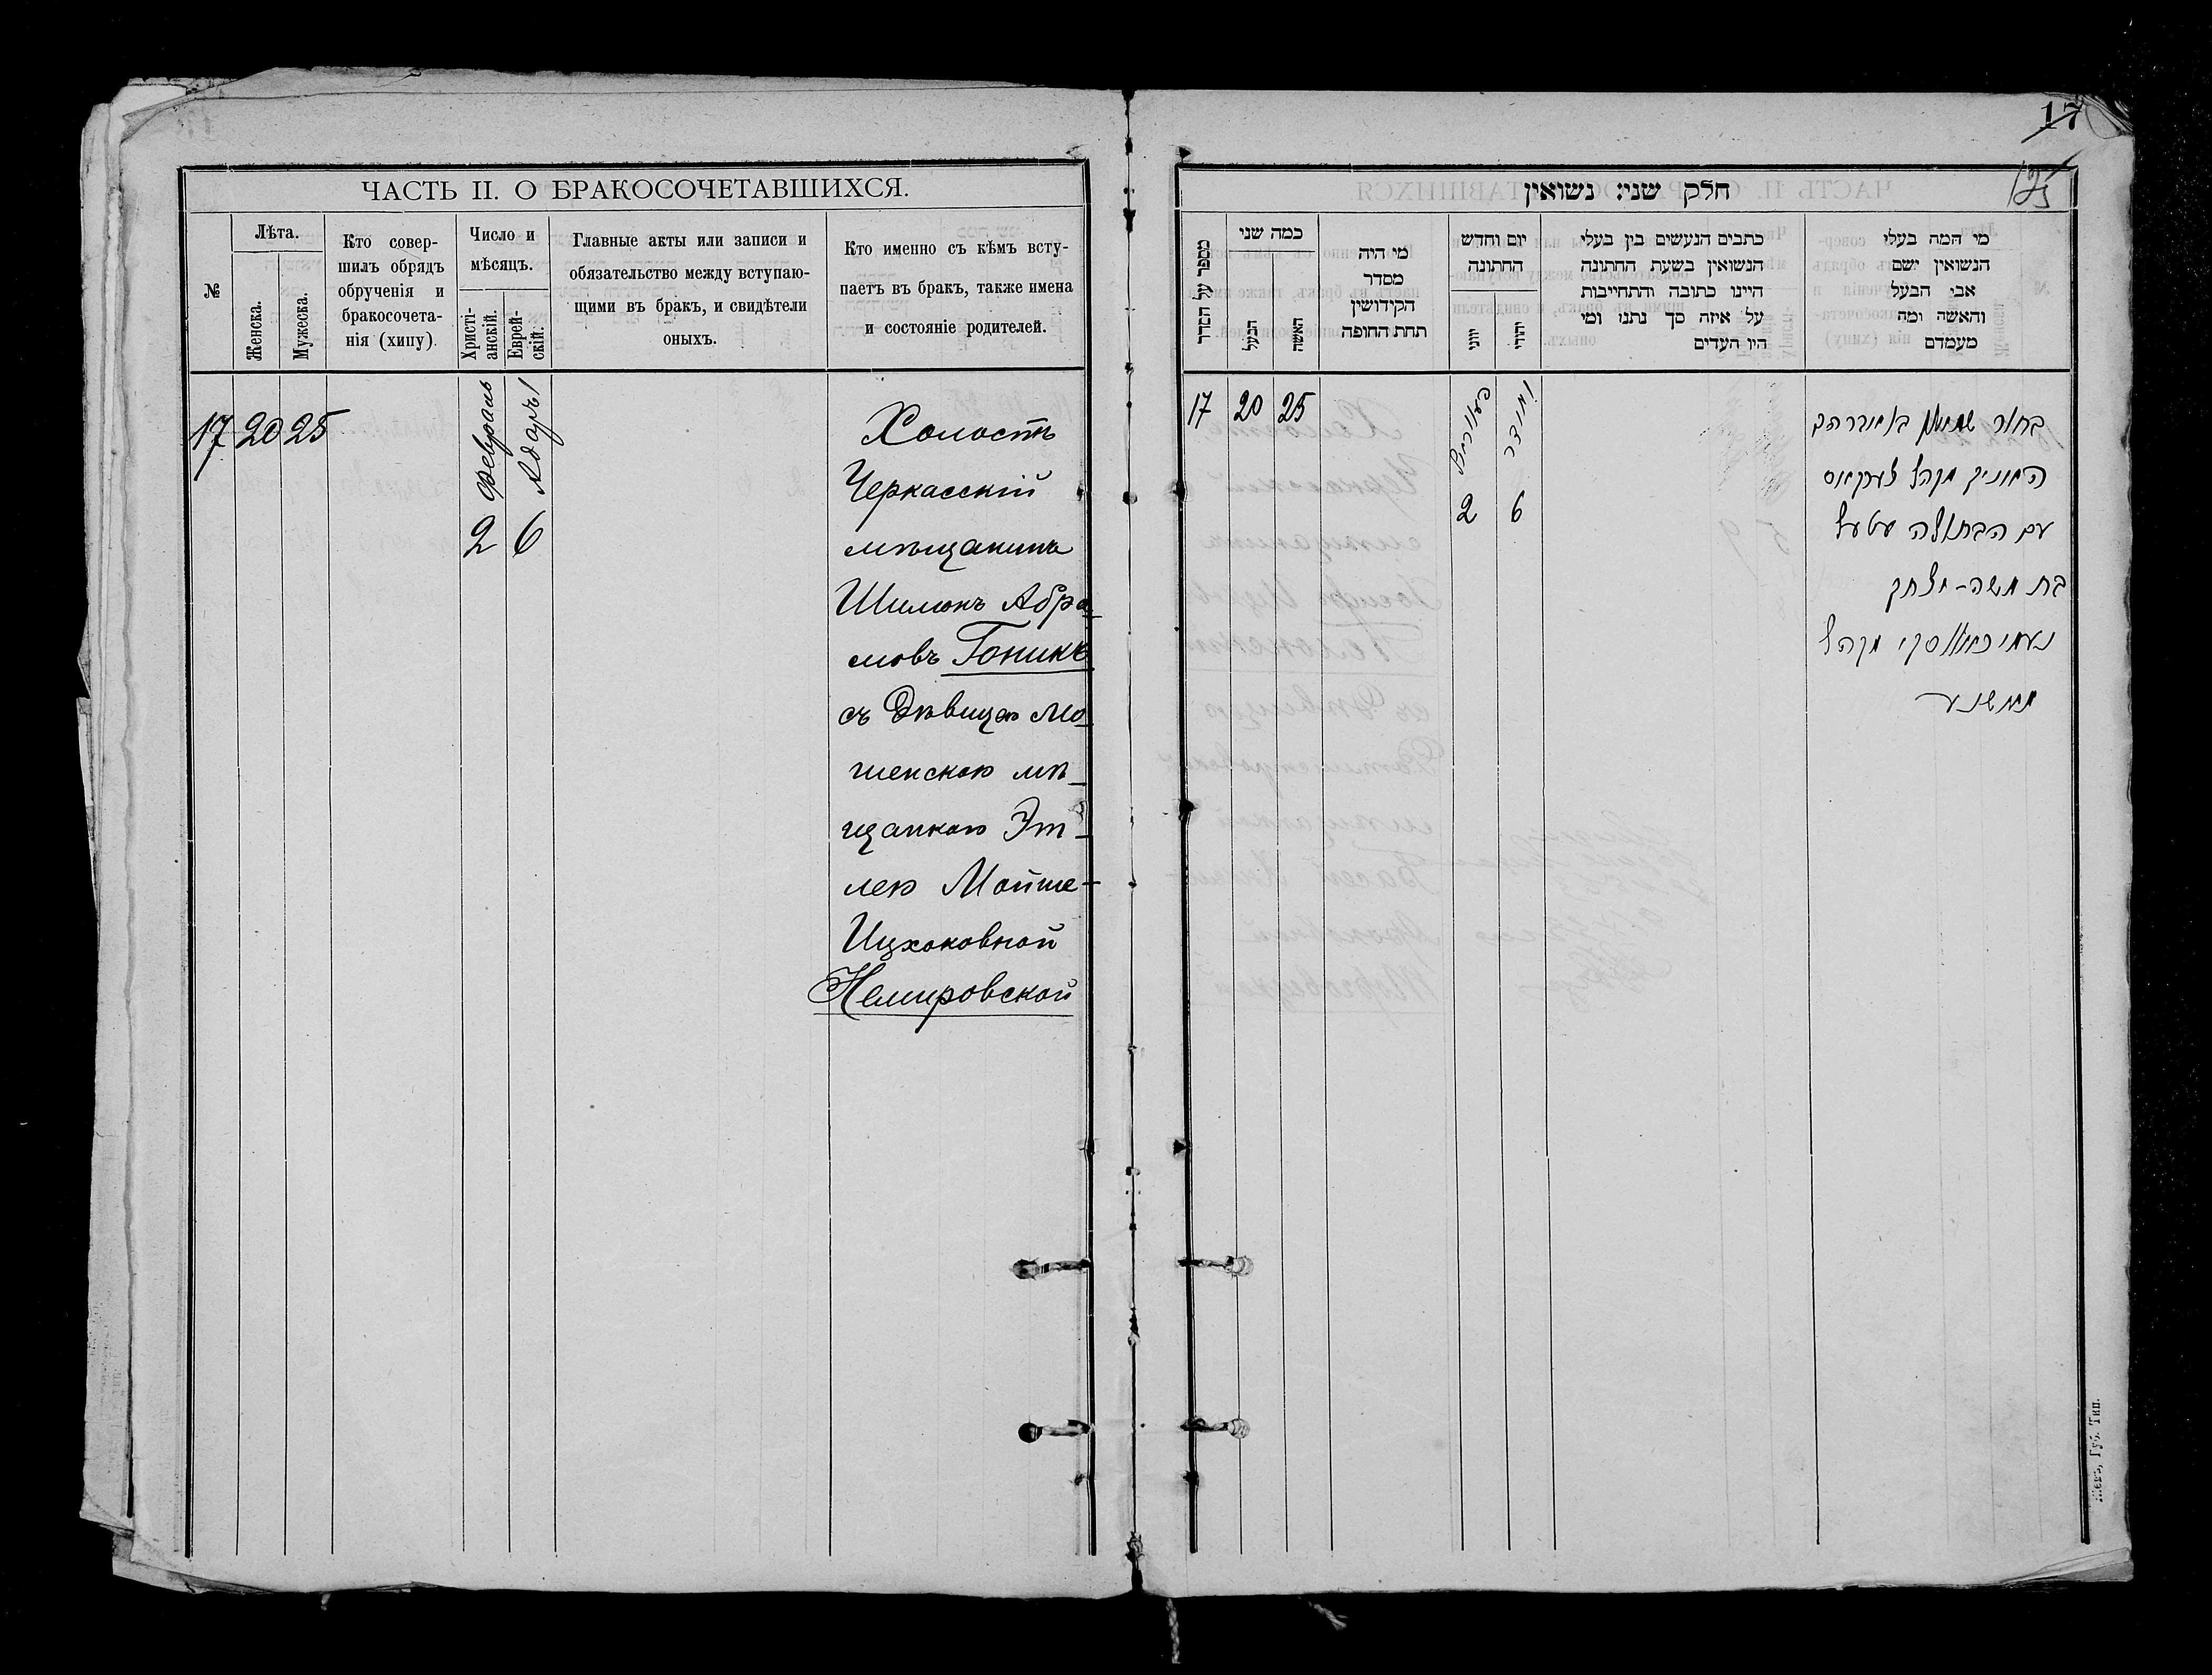 ЧАСТЬ II. О БРАКОСОЧЕТАВШИХСЯ.
№
Лѣта.
Женска.
Мужеска.
Кто совер-
шилъ обрядъ
обрученія и
бракосочета-
нія (хипу).
Число и
мѣсяцъ.
Христі-
анскій.
Еврей-
скій.
Главные акты или записи и
обязательство между вступаю-
щими въ бракъ, и свидѣтели
оныхъ.
Кто именно съ кѣмъ всту-
паетъ въ бракъ, также имена
и состояніе родителей.
17 20 25
Февраль
2
Адаръ I
6
Холостъ
Черкасскій
мѣщанинъ
Шимонъ Абра-
мовъ Гоникъ
съ Дѣвицею Мо-
шенскою мѣ-
щанкою Эт-
лею Мойше-
Ицхоковной
Немировской
17
חלק שני: נשואין
מספר על הסדר
כמה שני
הבעל
האשה
מי היה
מסדר
הקידושין
תחת החופה
יום וחדש
החתונה
יווני
יהודי
כתבים הנעשים בין בעלי
הנשואין בשעת החתונה
היינו כתובה והתחייבות
על איזה סך נתנו ומי
היו העדים
מי המה בעלי
הנשואין ישם
אבי הבעל
והאשה ומה
מעמדם
17 20 25
2
6
בחור שמעון
האניק מקהל
עם הבתולה עטעל
בת משה-יצחק
מקהל
Губ. Тип.